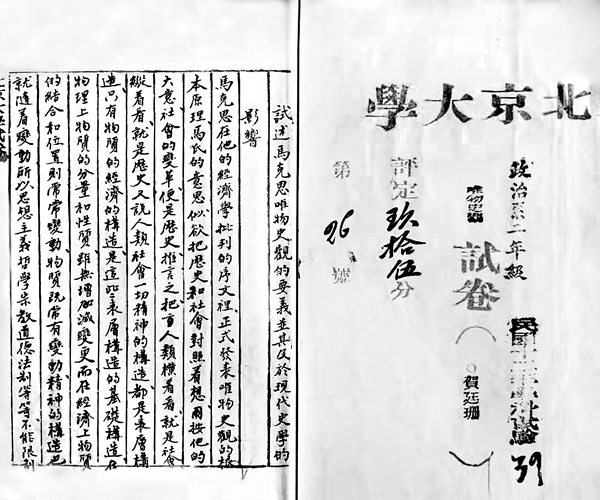 北京大學
政治系二年級
唯物史觀
試卷
(賀廷珊)
39
評定玖拾伍分
第26號
試述馬克思唯物史觀的要義並其及於現代史學的
影響
馬克思在他的經濟學批判的序文裡正式發表唯物史觀的根
本原理馬氏的意思似欲把歷史和社會對照着想兩按他的
大意社會的變革便是歷史推言之把盲人類橫着看就是社會
縱着看就是歷史又說人類社會一切精神的構造都是表層構
造只有物質的經濟的構造是這些表層構造的基礎構造在
物理上物質的分量和性質雖無增加減變更而在經濟上物質
的結合和位置則常常變動物質既常有變動精神的構造也
就隨着變動所以思想主義哲學宗教道德法制等等不能限制